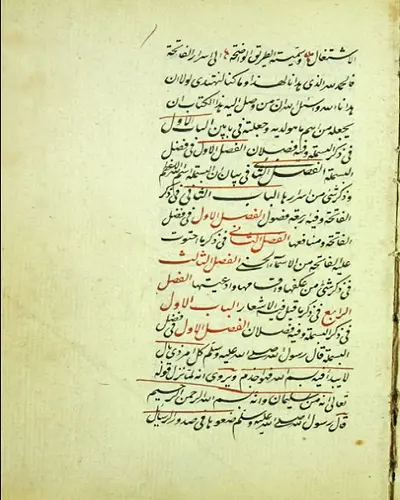 الاشتغال بها وسميته الطريق الواضحة الى اسرار الفاتحة
فالحمد لله الذي هدانا لهذا وما كنا لنهتدي لولا ان
هدانا الله ونسئل الله ان من وصل اليه هذا الكتاب ان
يجعله من اسم به وجعلته في بابين الباب الاول
في ذكر البسملة وفيه فصلان الفصل الاول في فضل
البسملة الفصل الثاني في بيان ان البسملة اسم الله الاعظم
وذكر شئ من اسرارها الباب الثاني في ذكر
الفاتحة وفيه اربعة فصول الفصل الاول في فضل
الفاتحة ومنافعها الفصل الثاني في ذكر ما احتوت
عليه الفاتحة من الاسماء الحسنى الفصل الثالث
في ذكر شئ من ودعوتها الفصل
الرابع في ذكر ما قيل فيه الاشعار الباب الاول
في ذكر البسملة وفيه فصلان الفصل الاول في فضل
البسملة قال رسول الله صلى الله عليه وسلم كل امر ذي بال
لا يبدأ فيه بسم الله فهو اجذم ويروى انه لما نزل قوله
تعالى انه من سليمان وانه بسم الله الرحمن الرحيم
قال رسول الله صلى الله عليه وسلم ضعوها في صدور الرسائل